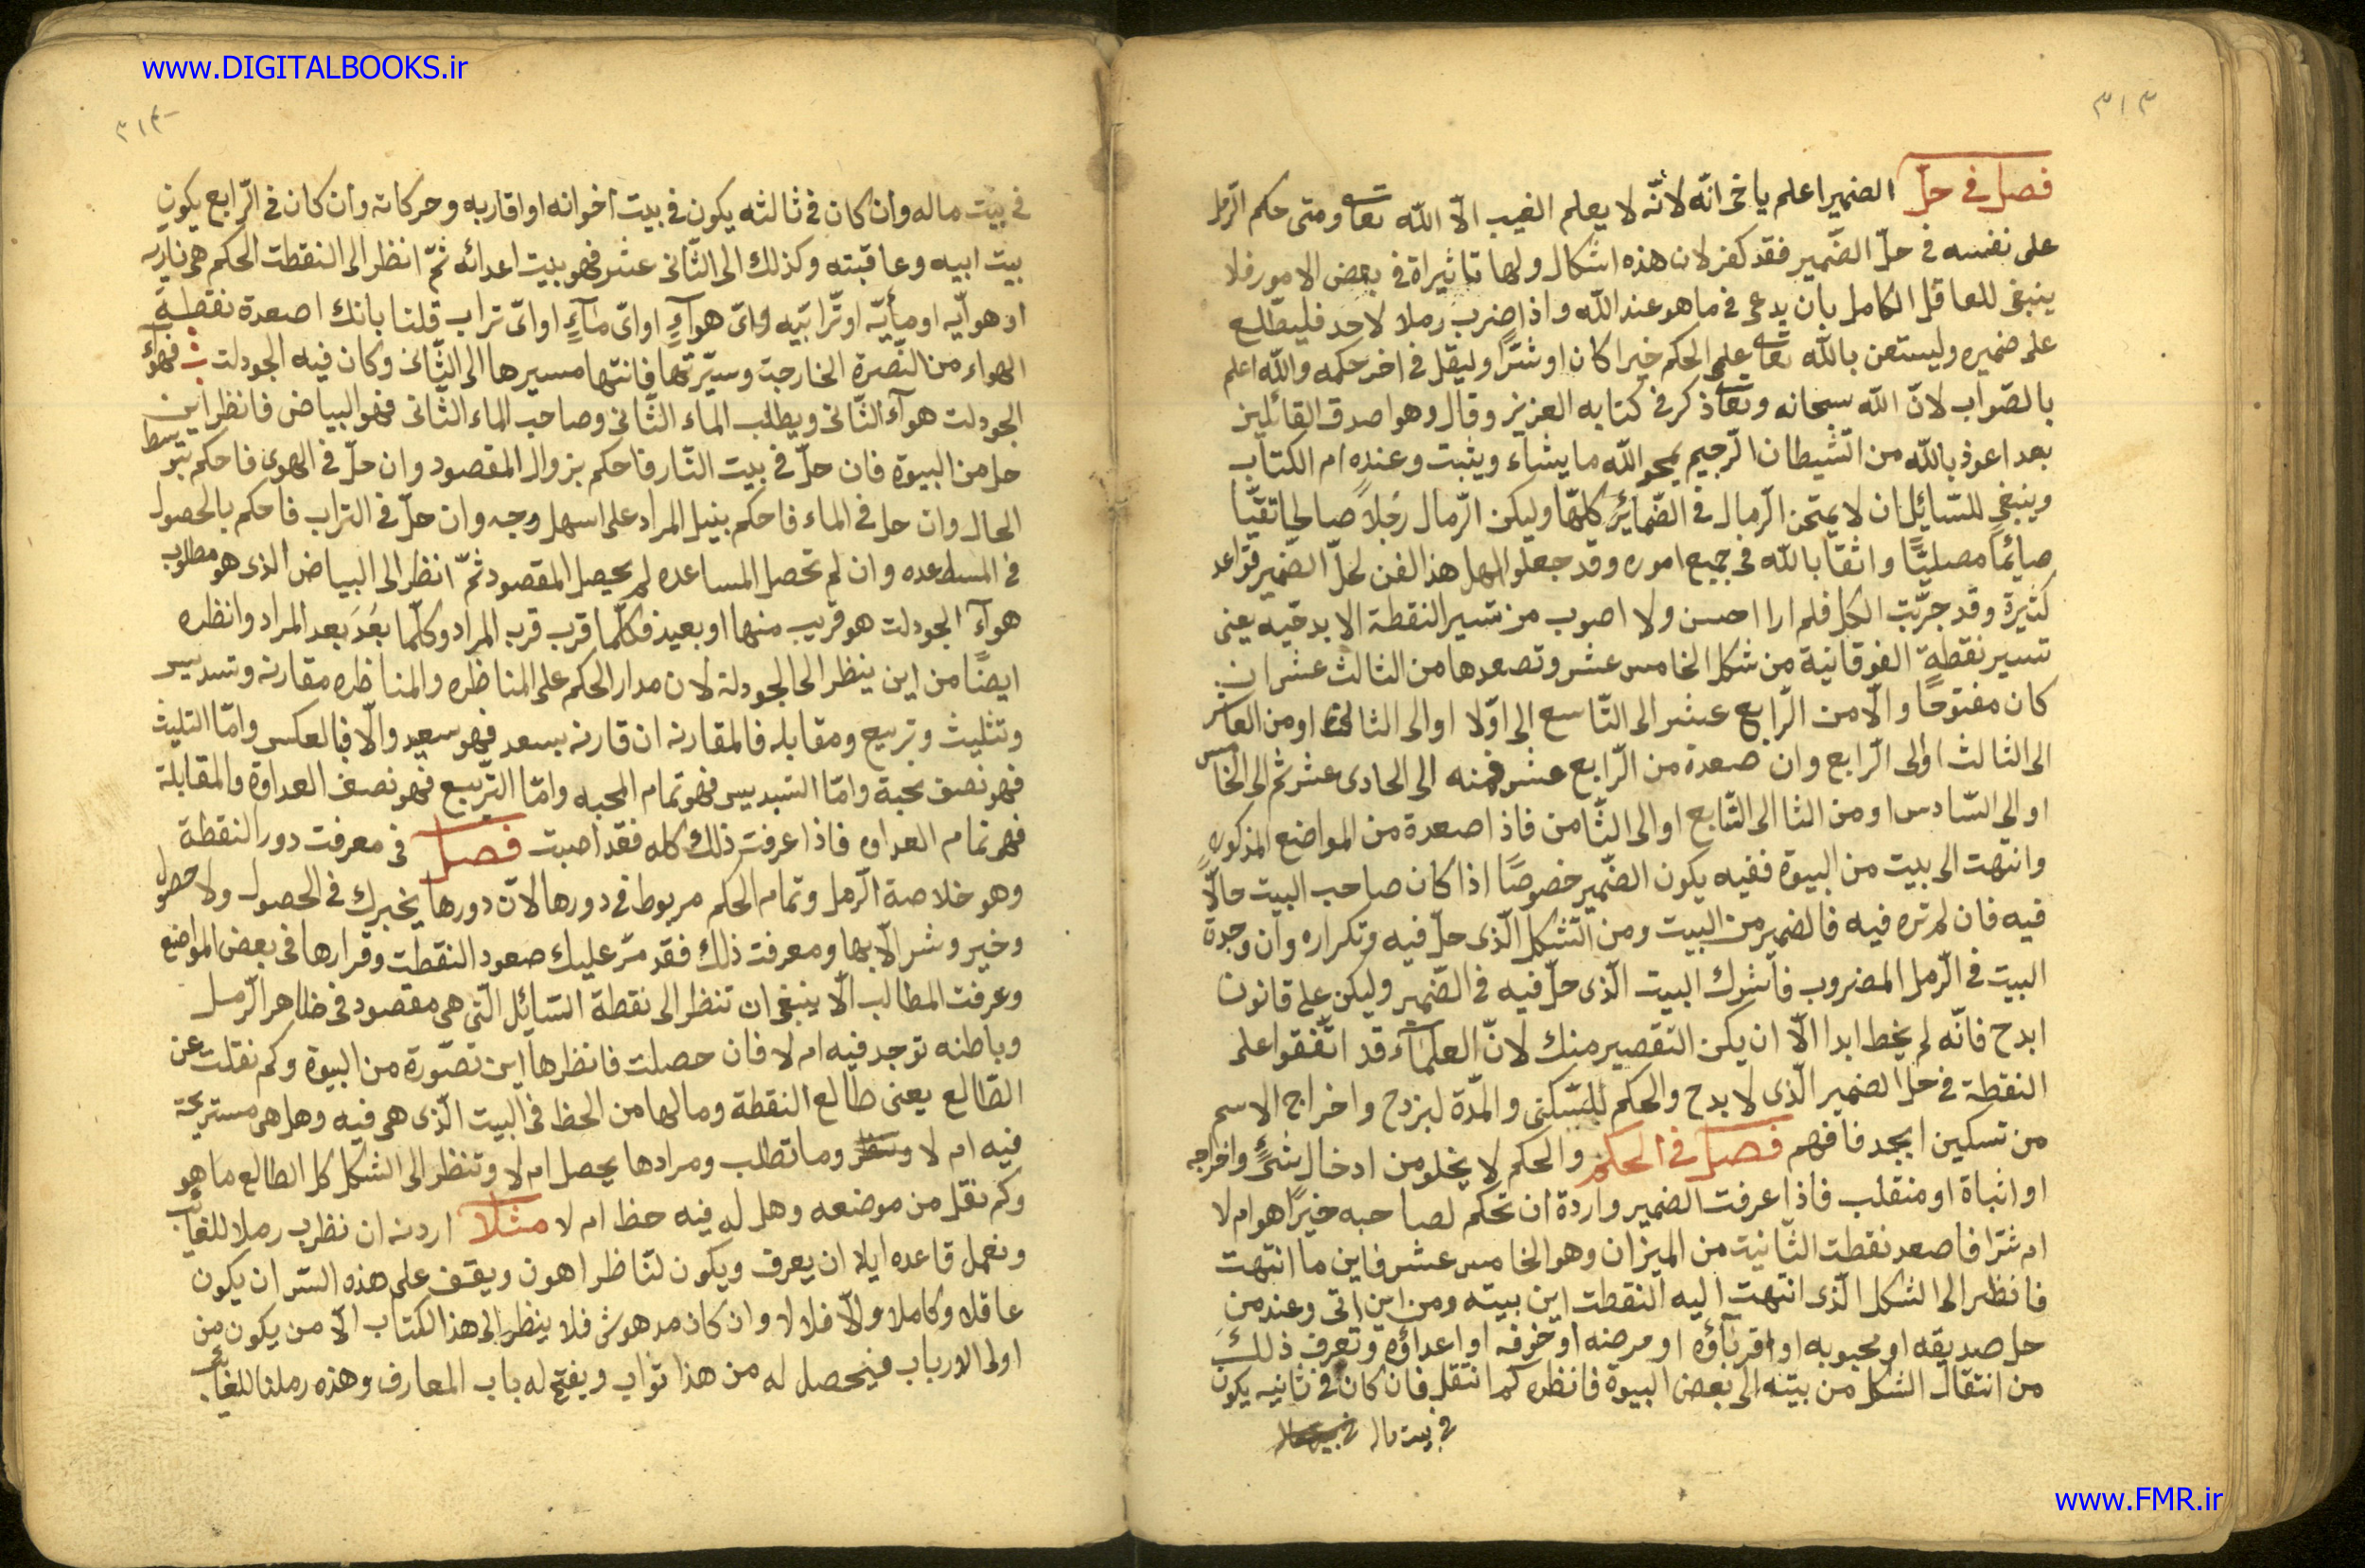 www.DIGITALBOOKS.ir
٣١٣
فصل فى حلّ الضمير اعلم ياخى انّه لانّه لا يعلم الغيب الّا اللّه تعا ومتى حكم الرّمل
على نفسه فى حلّ الضّمير فقد كفر لان هذه اشكال ولها تاثيراة فى بعض الامور فلا
ينبغى للعاقل الكامل بان يدعى فى ما هو عند اللّه واذا ضرب رملا لاحد فليطّلع
على ضميره وليستعن باللّه تعا على الحكم خيرا كان او شرًّا وليقل فى اخر حكمه واللّه اعلم
بالصّواب لانّ اللّه سبحانه وتعا ذكر فى كتابه العزيز وقال وهو اصدق القائلين
بعد اعوذ باللّه من الشيطان الرّجيم يمحو اللّه ما يشاء ويثبت وعنده ام الكتاب
وينبغى للسّائل ان لا يمتحن الرّمال فى الضّمائر كلّها وليكن الرّمال رجلاً صالحا تقيّا
صايمًا مصليًّا واثقا باللّه فى جميع اموره وقد جعلوا اهل هذا الفن لحلّ الضّمير قواعد
كثيرة وقد جرّبت الكل فلم ارا احسن ولا اصوب من تسير النقطة الابدحيه يعنى
تسير نقطة الفوقانية من شكل الخامس عشر وتصعدها من الثالث عشر ان
كان مفتوحًا والّا من الرّابع عشر الى التّاسع الى اوّلا او الى الثانى او من العاشر
الى الثالث اولى الرّابع وان صعدة من الرّابع عشر فمنه الى الحادى عشر ثم الى الخامس
او الى السّادس او من الثا الى السّابع او الى الثّامن فاذا صعدة من المواضع المذكوره
وانتهت الى بيت من البيوة ففيه يكون الضّمير خصوصًا اذا كان صاحب البيت حالّا
فيه فان لم تره فيه فالضمير من البيت ومن الشكل الّذى حلّ فيه وتكراره وان وجدة
البيت فى الرّمل المضروب فاشرك البيت الّذى حلّ فيه فى الضّمير وليكن على قانون
ابدح فانّه لم يخط ابدا الّا ان يكن التقصير منك لانّ العلمآء قد اتّفقوا على
النقطة فى حل الضمير الّذى لا بدح والحكم للسّكنى والمدّة لبزدح واخراج الاسم
من تسكين ابجد فافهم فصل فى الحكم والحكم لا يخلو من ادخال شئٍ واخراجه
او اثباة او منقلب فاذا عرفت الضمير واردة ان تحكم لصاحبه خيرًا هو ام لا
ام شرّا فاصعد نقطت الثّانيت من الميزان وهو الخامس عشر فاين ما انتهت
فانظر الى الشكل الّذى انتهت اليه النقطت اين بيته ومن اين اتى وعند من
حل صديقه او محبوبه او اقربآؤه او مرضه او خوفه او اعداؤه وتعرف ذلك
من انتقال الشكل من بيته الى بعض البيوة فانظره كم انتقل فان كان فى ثانيه يكون
فى بيت ماله
٣١٤
فى بيت ماله وان كان فى ثالثه يكون فى بيت اخوانه او اقاربه وحركاته وان كان فى الرّابع يكون
بيت ابيه وعاقبته وكذلك الى الثّانى عشر فهو بيت اعدائه ثمّ انظر الى النقطت الحكم هى ناريه
او هوآيّه او مآيّه او ترابيّه واىّ هوآءٍ او اىّ مآءٍ او اىّ تراب قلنا بانك اصعدة نقطة
الهواء من النّصرة الخارجة وسيّرتها فانتها مسيرها الى الثّانى وكان فيه الجودلت فهوآء
الجودلت هوآء الثّانى ويطلب الماء الثّانى وصاحب الماء الثّانى فهو البياض فانظر اين
حل من البيوة فان حلّ فى بيت النّار فاحكم بزوال المقصود وان حلّ فى الهوى فاحكم بتوسط
الحال وان حل فى الماء فاحكم بنيل المراد على اسهل وجه وان حلّ فى التراب فاحكم بالحصول
فى المسط عده وان لم تحصل المساعده لم يحصل المقصود ثمّ انظر الى البياض الذى هو مطلوب
هوآء الجودلت هو قريب منها او بعيد فكلّما قرب قرب المراد وكلّما بعُدَ بعد المراد وانظره
ايضًا من اين ينظر الى الجودلة لان مدار الحكم على المناظره والمناظره مقارنه وتسديس
وتثليث وتربيع ومقابله فالمقارنه ان قارنه بسعد فهو سعيد والّا فبالعكس وامّا التليث
فهو نصف محبة وامّا التسديس فهو تمام المحبه وامّا التّربيع فهو نصف العداوة والمقابلة
فهو تمام العداوه فاذا عرفت ذلك كله فقد اصبت فصل فى معرفت دور النقطة
وهو خلاصة الرّمل وتمام الحكم مربوط فى دورها لانّ دورها يخبرك فى الحصول ولا حصول
وخير وشر الّا بها ومعرفت ذلك فقد مرّ عليك صعود النقطت وقرارها فى بعض المواضع
وعرفت المطالب الّا ينبغى ان تنظر الى نقطة السّائل الّتى هى مقصود فى ظاهر الرّمل
وباطنه توجد فيه ام لا فان حصلت فانظرها اين تصوّرة من البيوة وكم نقلت عن
الطّالع يعنى طالع النقطة وما لها من الحظ فى البيت الّذى هى فيه وهل هى مستريحة
فيه ام لا وما تطلب ومرادها يحصل ام لا وتنظر الى الشكل كل الطالع ما هو
وكم نقل من موضعه وهل له فيه حظ ام لا مثلا اردنه ان نظرب رملا للغايب
ونعمل قاعده ايلا ان يعرف ويكون لنّاظرا هون ويقف على هذه السّر ان يكون
عاقلا وكاملا والّا فلا لا وان كان مدهوش فلا ينظر الى هذا الكتاب الّا من يكون من
اولى الارباب فيحصل له من هذا ثواب ويفتح له باب المعارف وهذه رملنا للغايب
www.FMR.ir